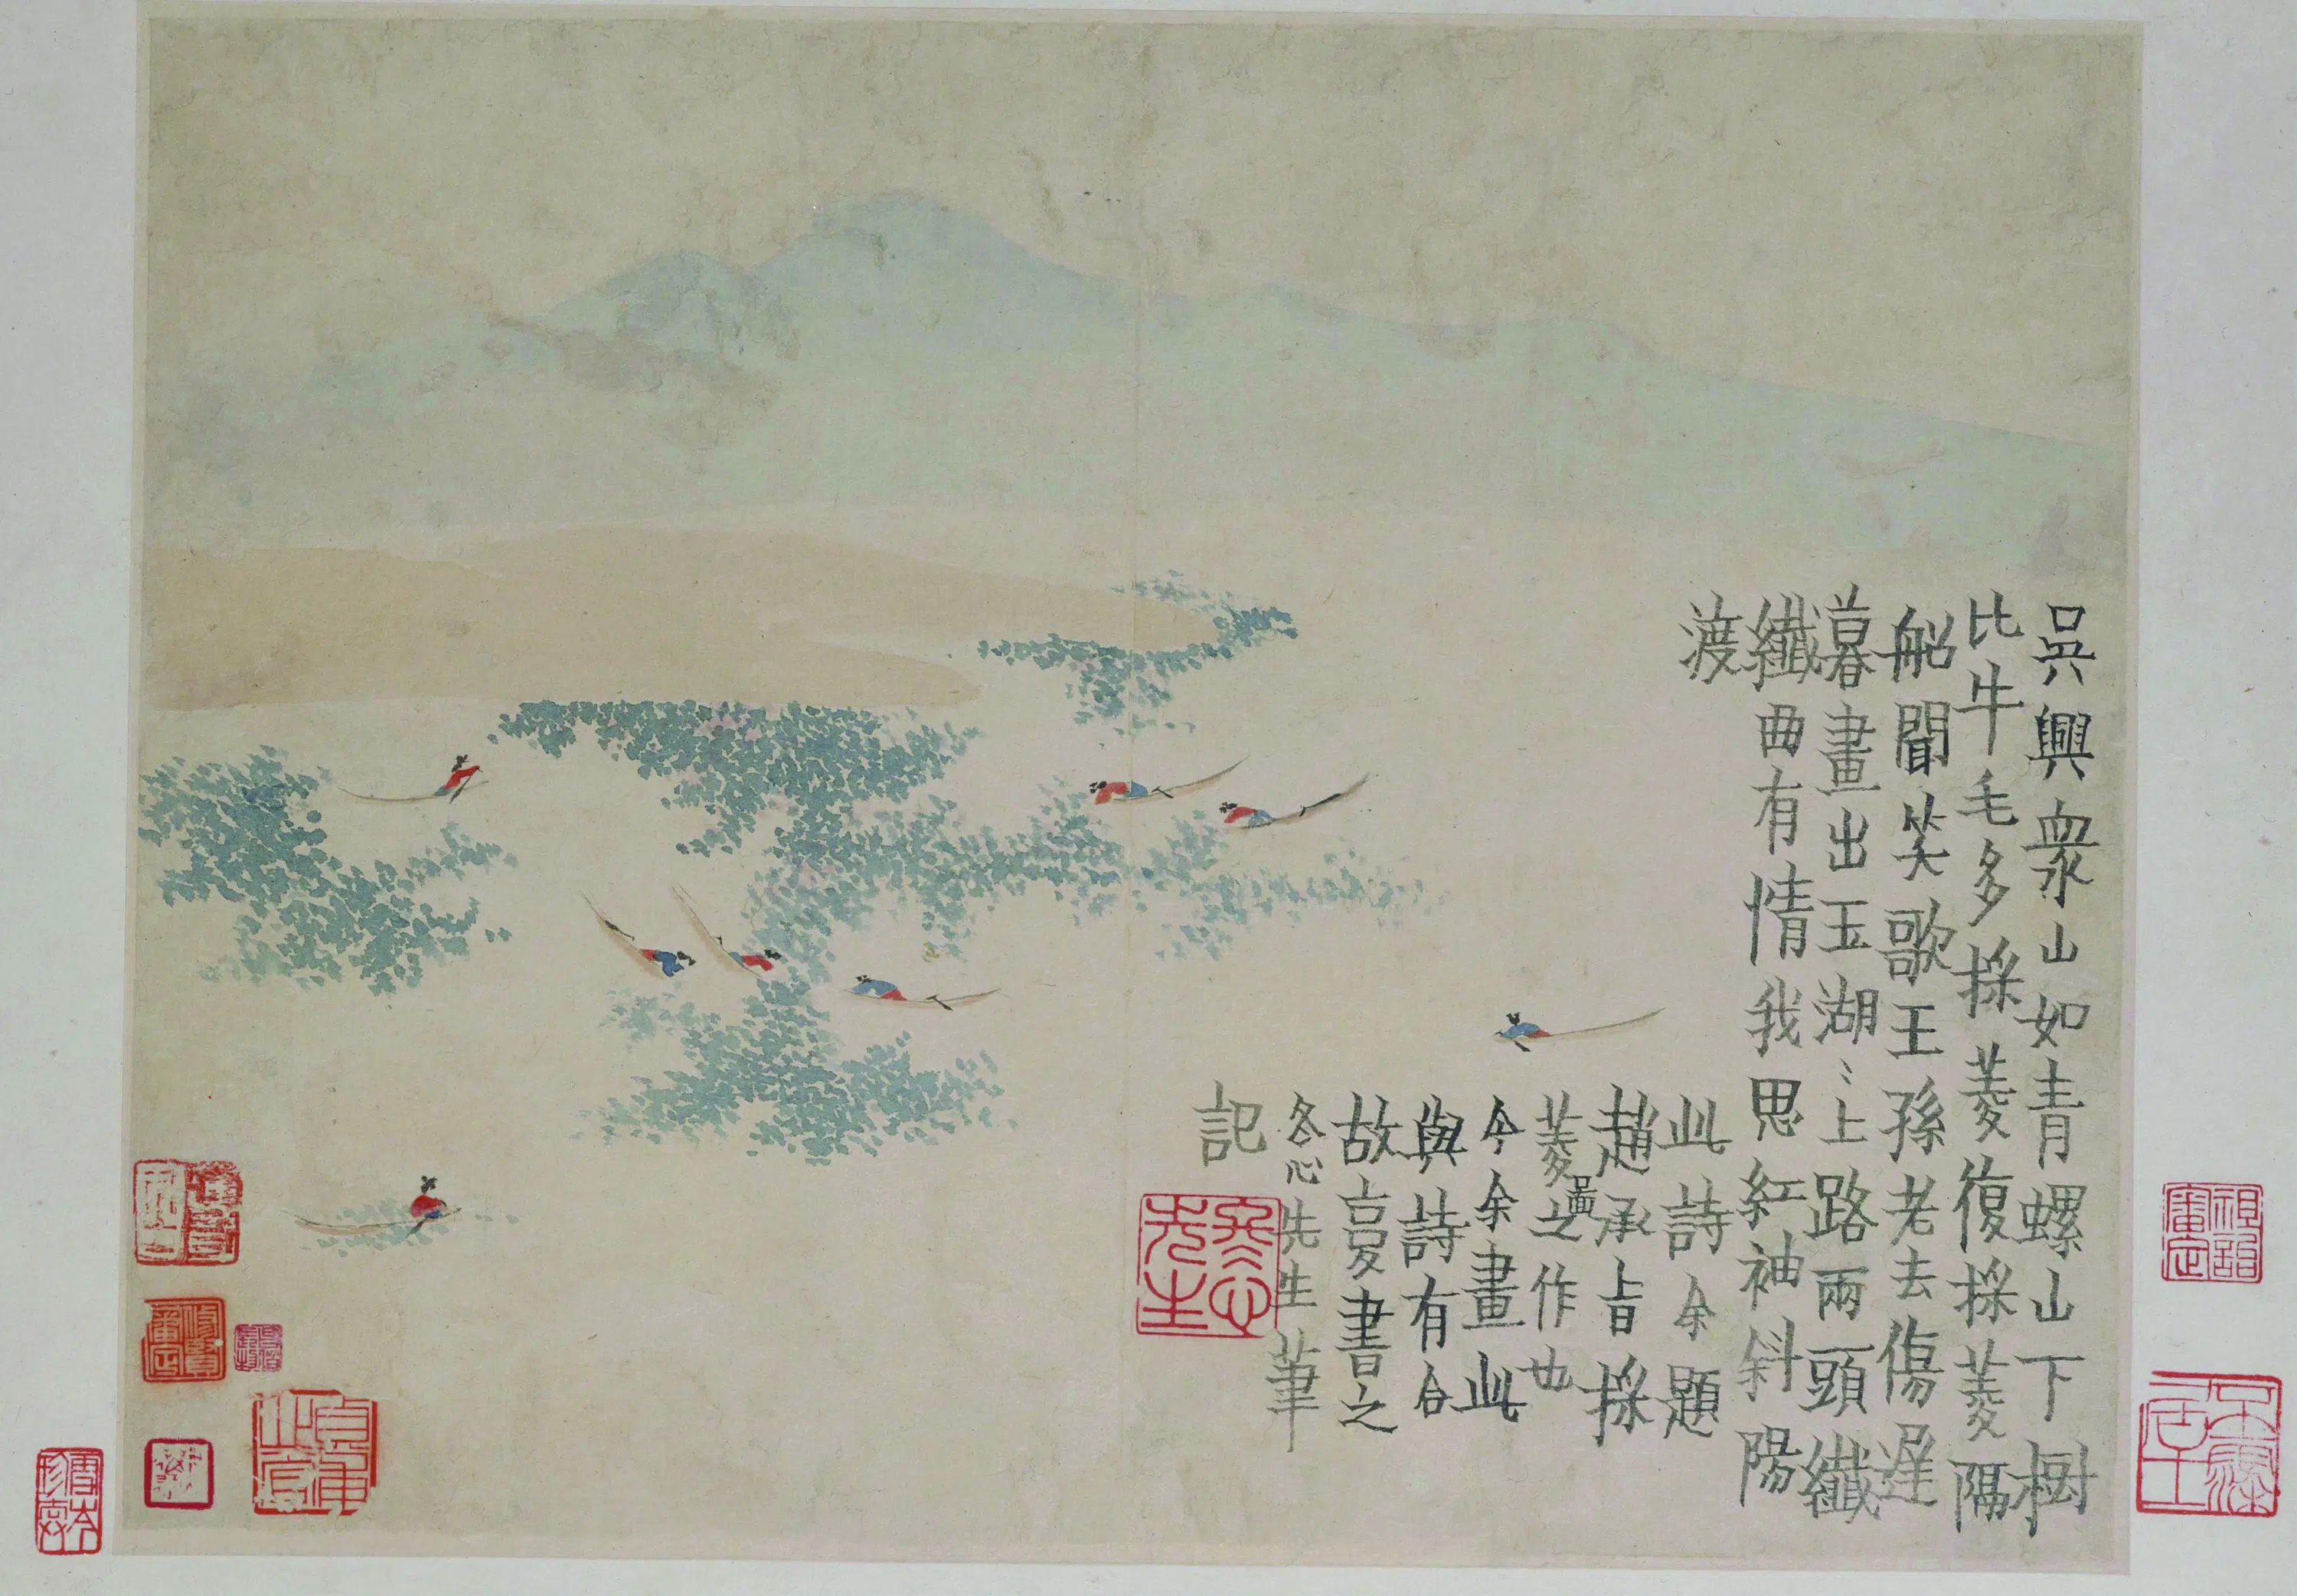 吳興衆山如青螺山下樹
比牛毛多採菱復採菱隔
船聞笑歌王孫老去傷遲
暮畫出玉湖〻上路兩頭纖
纖曲有情我思紅袖斜陽
渡
此詩余題
趙承旨採
菱圖之作也
今余畫此
與詩有合
故亯書之
冬心先生筆
記
冬心先生